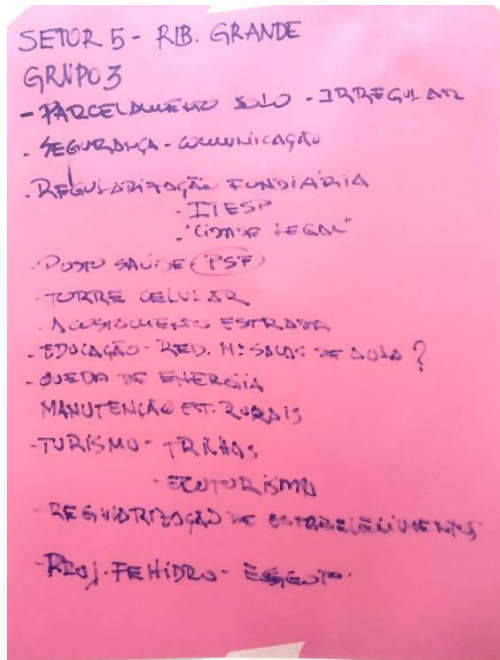 SETOR 5 - RIB. GRANDE
GRUPO 3
- PARCELAMENTO SOLO - IRREGULAR
- SEGURANÇA - COMUNICAÇÃO
- REGULARIZAÇÃO FUNDIÁRIA
- ITESP
- "CIDADE LEGAL"
- POSTO SAÚDE (PSF)
- TORRE CELULAR
- ACOSTAMENTO ESTRADA
- EDUCAÇÃO - RED. Nº SALAS DE AULA ?
- QUEDA DE ENERGIA
MANUTENÇÃO EST. RURAIS
- TURISMO - TRILHAS
- ECOTURISMO
REGULARIZAÇÃO DE ESTABELECIMENTOS
- PROJ. FEHIDRO - ESGOTO.